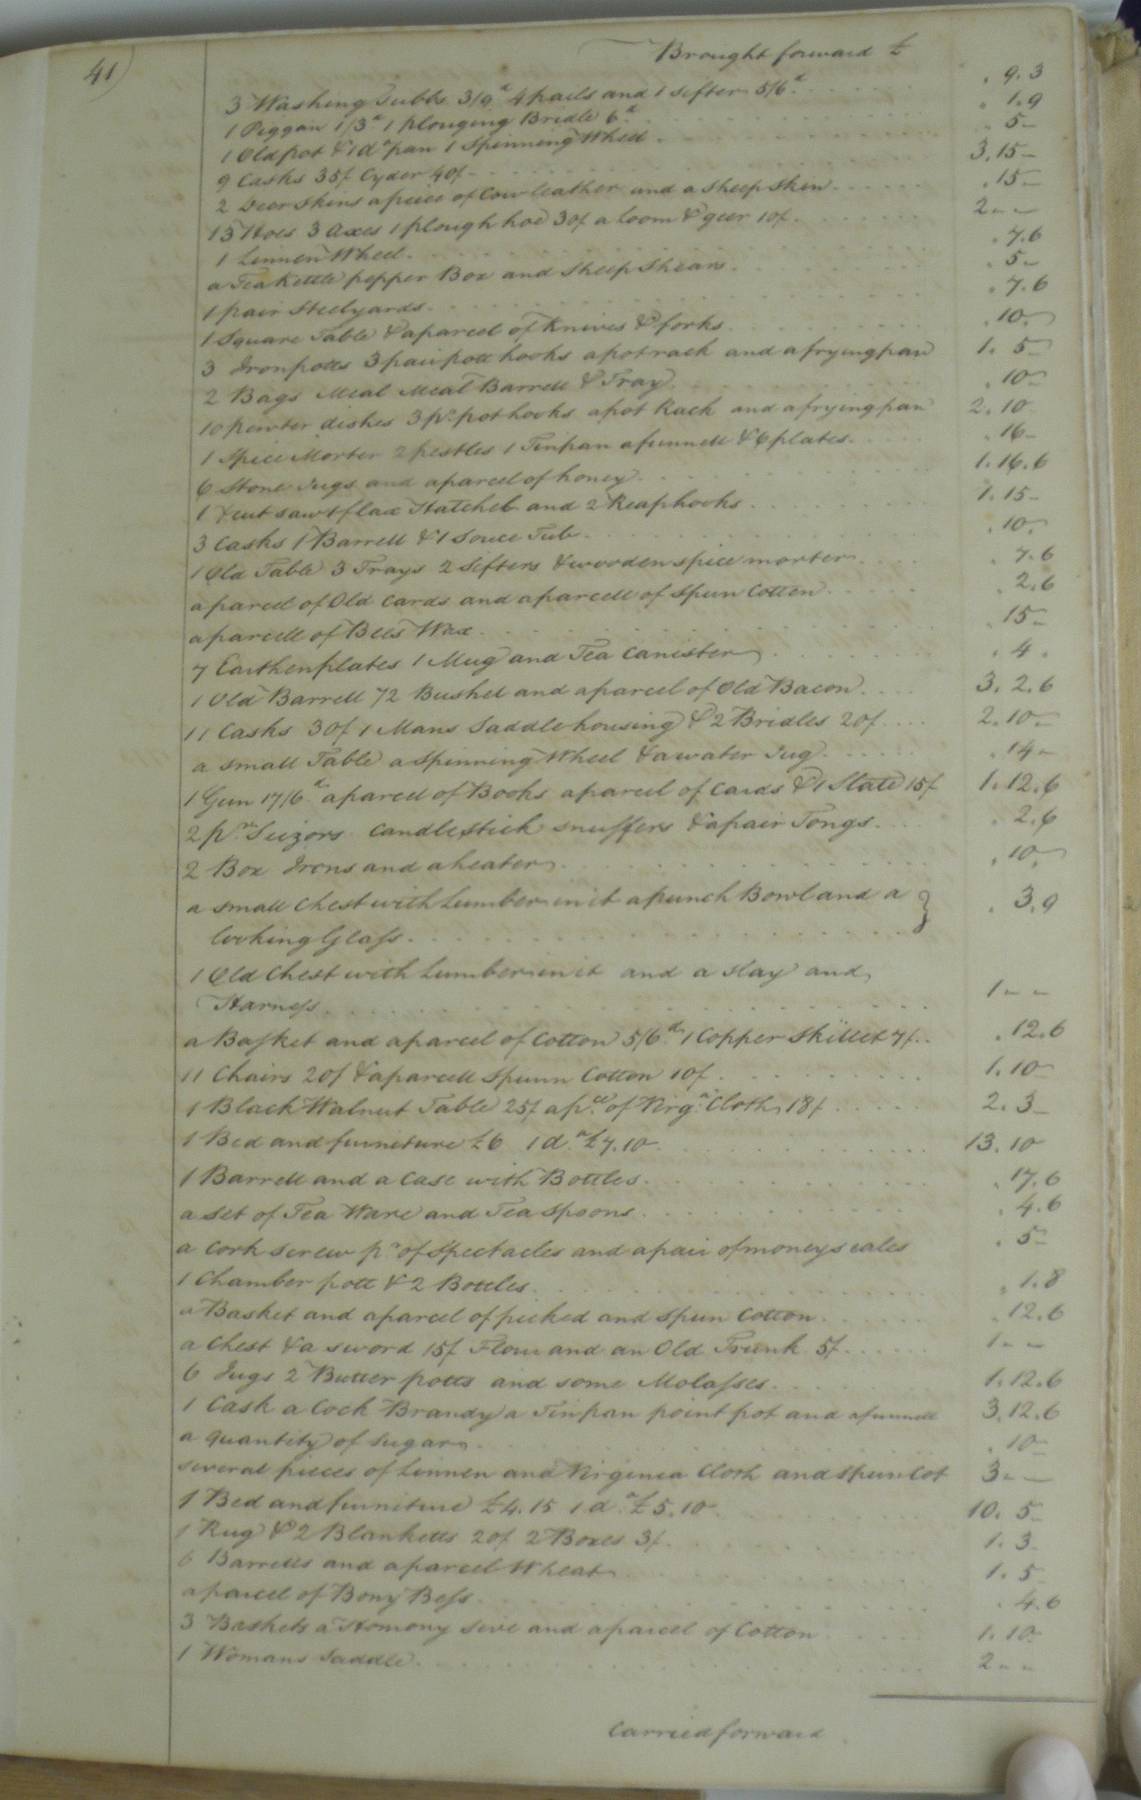 41)
Brought forward £
3 Washing Tubbs 3/9d 4 pails and 1 sifter 5/6d . 9. 3
1 Piggan 1/3d 1 plouging Bridle 6d . 1. 9
1 Old pot & 1 do pan 1 Spinning Wheel . 5 -
9 Casks 35/ Cyder 40/ 3. 15 -
2 Deer Skins a piece of Cow leather and a sheep skin . 15 -
13 Hoes 3 Axes 1 plough hoe 30/ a loom & geer 10/ 2 - -
1 Linnen Wheel . 7. 6
a Tea Kettle pepper Box and sheep shears . 5 -
1 pair Steelyards . 7. 6
1 Square Table & a parcel of Knives & forks . 10 -
3 Iron potts 3 pair pott hooks a pot rack and a frying pan 1. 5 -
2 Bags Meal Meal Barrell & Tray . 10 -
10 pewter dishes 3 pr pot hooks a pot Rack and a frying pan 2. 10
1 Spice Morter 2 pestles 1 Tin pan a funnell & 6 plates . 16 -
6 Stone Jugs and a parcel of honey 1. 16. 6
1 Xcut saw 1 flax Hatchel and 2 Reaphooks 1. 15 -
3 Casks 1 Barrell & 1 Souce Tub . 10 -
1 Old Table 3 Trays 2 Sifters & wooden spice morter . 7. 6
a parcel of Old Cards and a parcell of Spun Cotton . 2. 6
a parcell of Bees Wax . 15 -
7 Earthen plates 1 Mug and Tea Canister . 4 .
1 Old Barrell 72 Bushel and a parcel of Old Bacon 3. 2. 6
11 Casks 30/ 1 Mans Saddle housing & 2 Bridles 20/ 2. 10 -
a small Table a Spinning Wheel & a water Jug . 14 -
1 Gun 17/6d a parcel of Books a parcel of Cards & 1 Slate 15/ 1. 12. 6
2 pr Scizors Candlestick snuffers & a pair Tongs . 2. 6
2 Box Irons and a heater . 10 -
a small Chest with Lumber in it a punch Bowl and a } . 3. 9
looking Glass
1 Old Chest with Lumber in it and a slay and
Harness 1 - -
a Basket and a parcel of Cotton 5/6d 1 Copper Skillet 7/ . 12. 6
11 Chairs 20/ & a parcell Spunn Cotton 10/ 1. 10 -
1 Black Walnut Table 25/ a pce of Virga Cloth 18/ 2. 3 -
1 Bed and furniture £6 1 do £7. 10 13. 10
1 Barrell and a Case with Bottles . 17. 6
a set of Tea Ware and Tea Spoons . 4. 6
a Cork screw pr of Spectacles and a pair of money scales . 5 -
1 Chamber pott & 2 Bottles . 1. 8
a Basket and a parcel of picked and spun Cotton . 12. 6
a Chest & a sword 15/ Flour and an Old Trunk 5/ 1 - -
6 Jugs 2 Butter potts and some Molasses 1. 12. 6
1 Cask a Cock Brandy a Tin pan point pot and a funnell 3. 12. 6
a quantity of sugar . 10 -
several pieces of Linnen and Virginia Cloth and spun Cot 3 - -
1 Bed and furniture £4. 15 1 do £5. 10 10. 5 -
1 Rug & 2 Blanketts 20/ 2 Boxes 3/ 1. 3 -
6 Barrells and a parcel Wheat 1. 5
a parcel of Bony Bess . 4. 6
3 Baskets a Homony sive and a parcel of Cotton 1. 10
1 Womans Saddle 2 - -
Carried forward